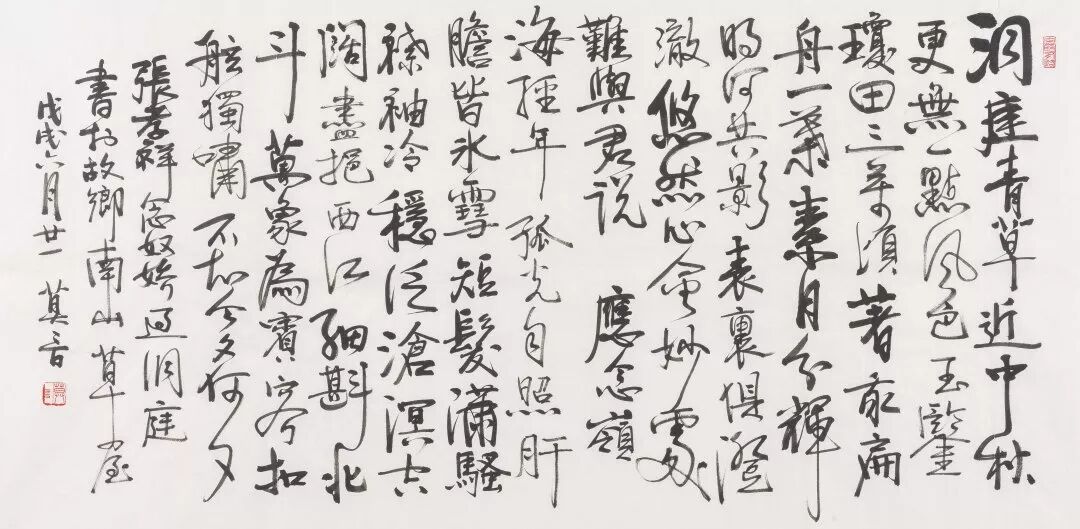 洞庭青草近中秋
更無一點風色玉鑒
瓊田三万頃著我扁
舟一葉素月分輝
明河共影表裏俱澄
澈悠然心會妙處
難與君説應念嶺
海經年孤光自照肝
膽皆冰雪短髮瀟騷
襟袖冷穩泛滄溟空
闊盡挹西江細斟北
斗萬象為賓客扣
舷獨嘯不知今夕何夕
張孝祥念奴嬌過洞庭
書於故鄉南山草堂
戊戌六月廿一莫言